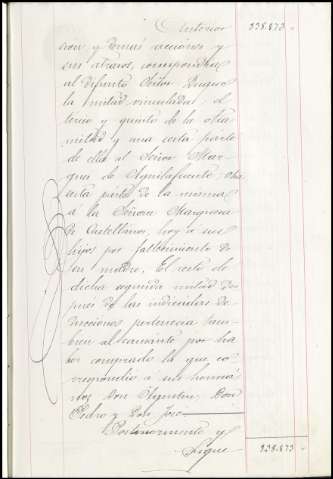 Anterior 338.873
con, y demás acciones y
sus atrasos, correspondían
al difunto Señor Duque
la mitad vinculada: el
tercio y quinto de la otra
mitad y una sexta parte
de ella al Señor Mar-
qués de Aguilafuente; otra
sexta parte de la misma
a la Señora Marquesa
de Castellanos, hoy a sus
hijos por fallecimiento de
su madre. El resto de
dicha segunda mitad des-
pues de las indicadas de-
ducciones pertenecia tam-
bien al causante por ha-
ber comprado la que co-
rrespondió a sus herma-
nos Don Agustin, Don
Pedro y Don José
Posteriormente y
Sigue 338.873